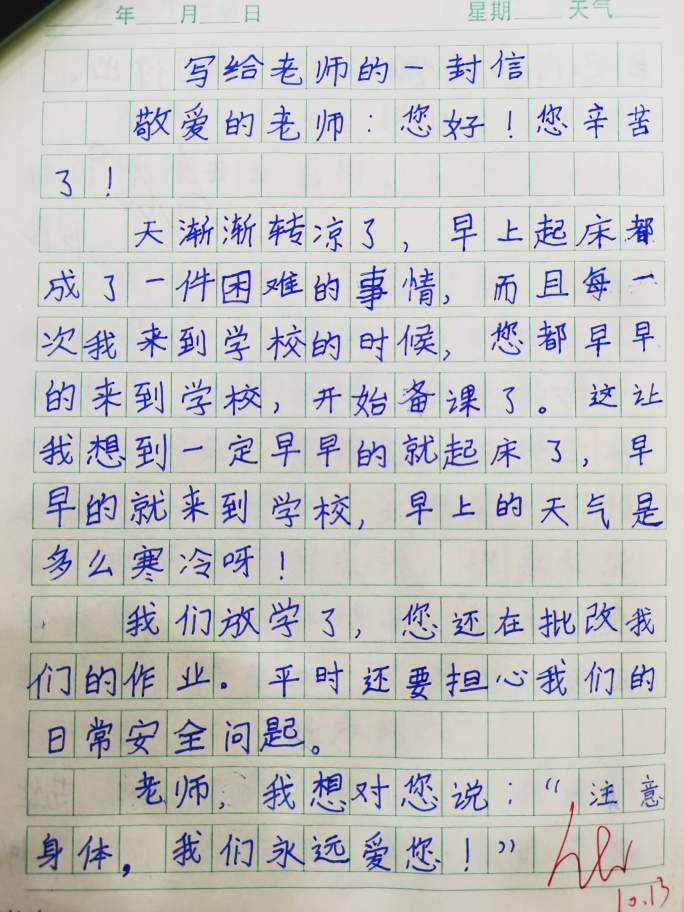 年 月 日 星期 天气
写给老师的一封信
敬爱的老师：您好！您辛苦
了！
天渐渐转凉了，早上起床都
成了一件困难的事情，而且每一
次我来到学校的时候，您都早早
的来到学校，开始备课了。这让
我想到一定早早的就起床了，早
早的就来到学校，早上的天气是
多么寒冷呀！
我们放学了，您还在批改我
们的作业。平时还要担心我们的
日常安全问起。
老师，我想对您说：“注意
身体，我们永远爱您！”
10.13